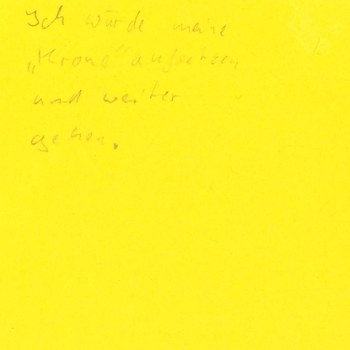 Ich würde meine
„Krone“ aufsetzen
und weiter
gehen.